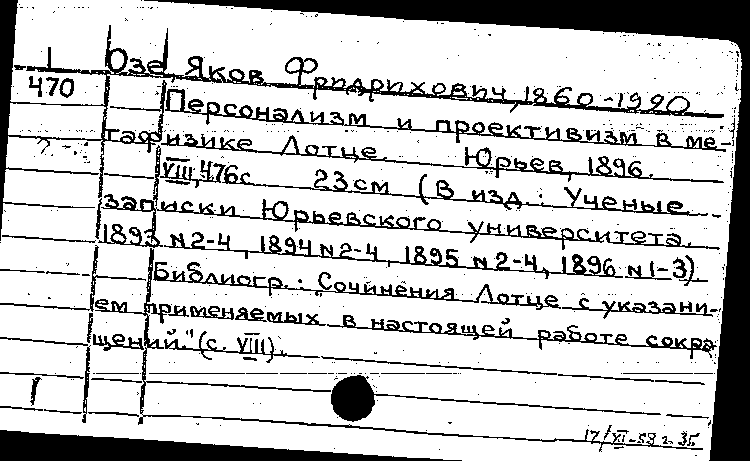 1
470
Озе, Яков Фридрихович, 1860-1920
Персонализм и проективизм в ме-
тафизике Лотце. Юрьев, 1896.
VIII, 476с 23см (В изд.: Ученые
записки Юрьевского университета.
1893 N2-4, 1894 N2-4, 1895 N2-4, 1896 N1-3).
Библиогр.: "Сочинения Лотце с указани-
ем применяемых в настоящей работе сокра
щений." (с. VIII).
1
17/XI-59 г.